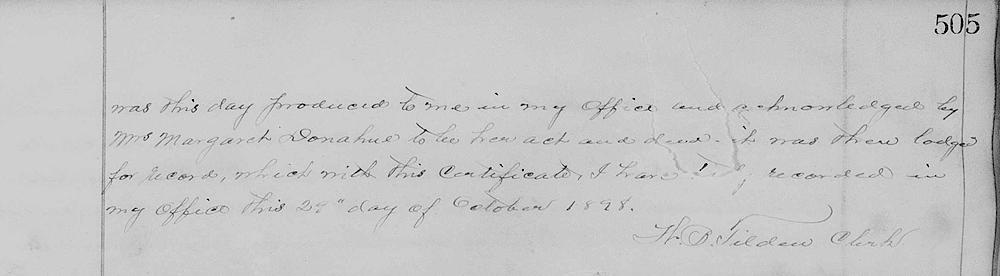 505
was this day produced to me in my Office and acknowledged by
Mrs Margaret Donahue to be her act and deed. it was then lodge
for record, which with this Certificate, I have recorded in
my Office this day of October 1898.
W. B. Tilden Clerk